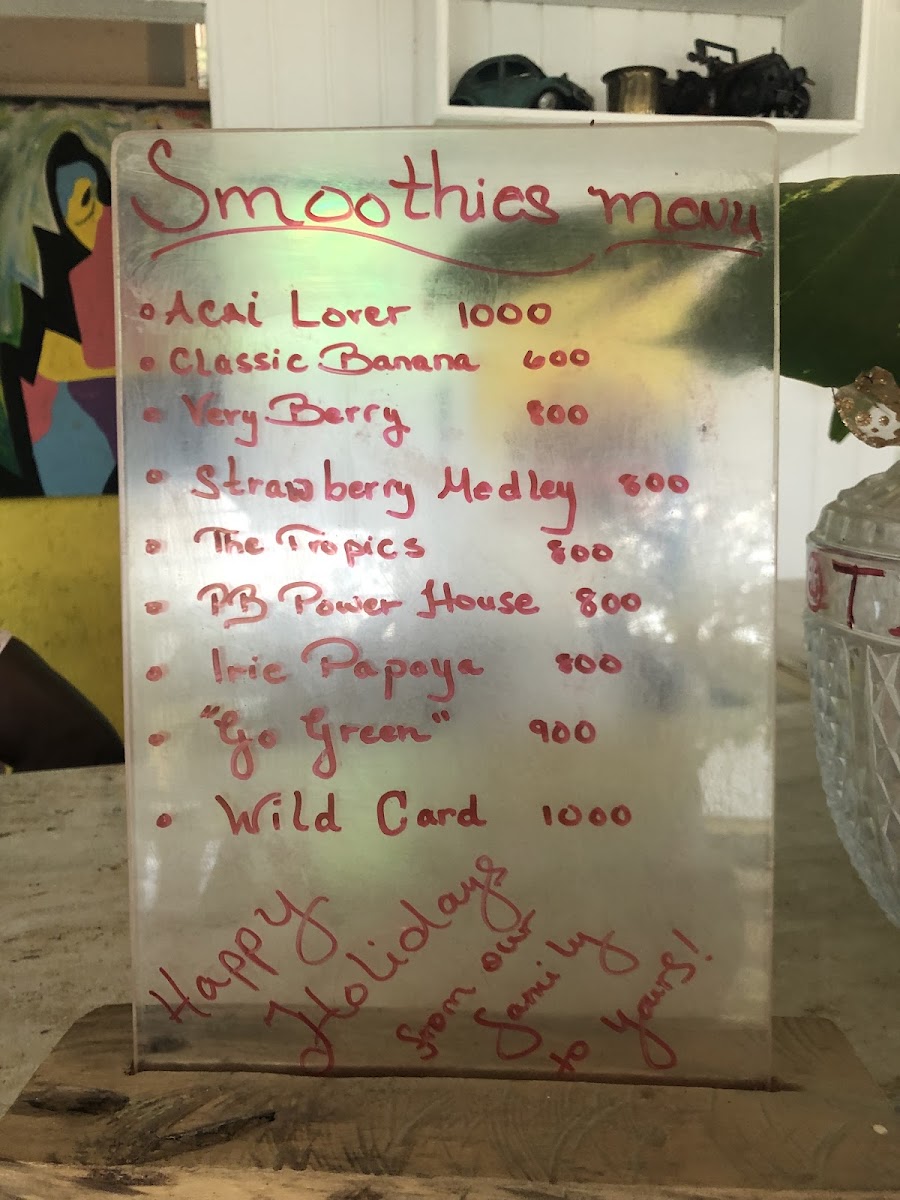 Smoothies menu
• Acai Lover 1000
• Classic Banana 600
• Very Berry 800
• Strawberry Medley 800
• The Tropics 800
• PB Power House 800
• Irie Papaya 800
• "Go Green" 900
• Wild Card 1000
Happy
Holidays
from our
family
to yours!
T